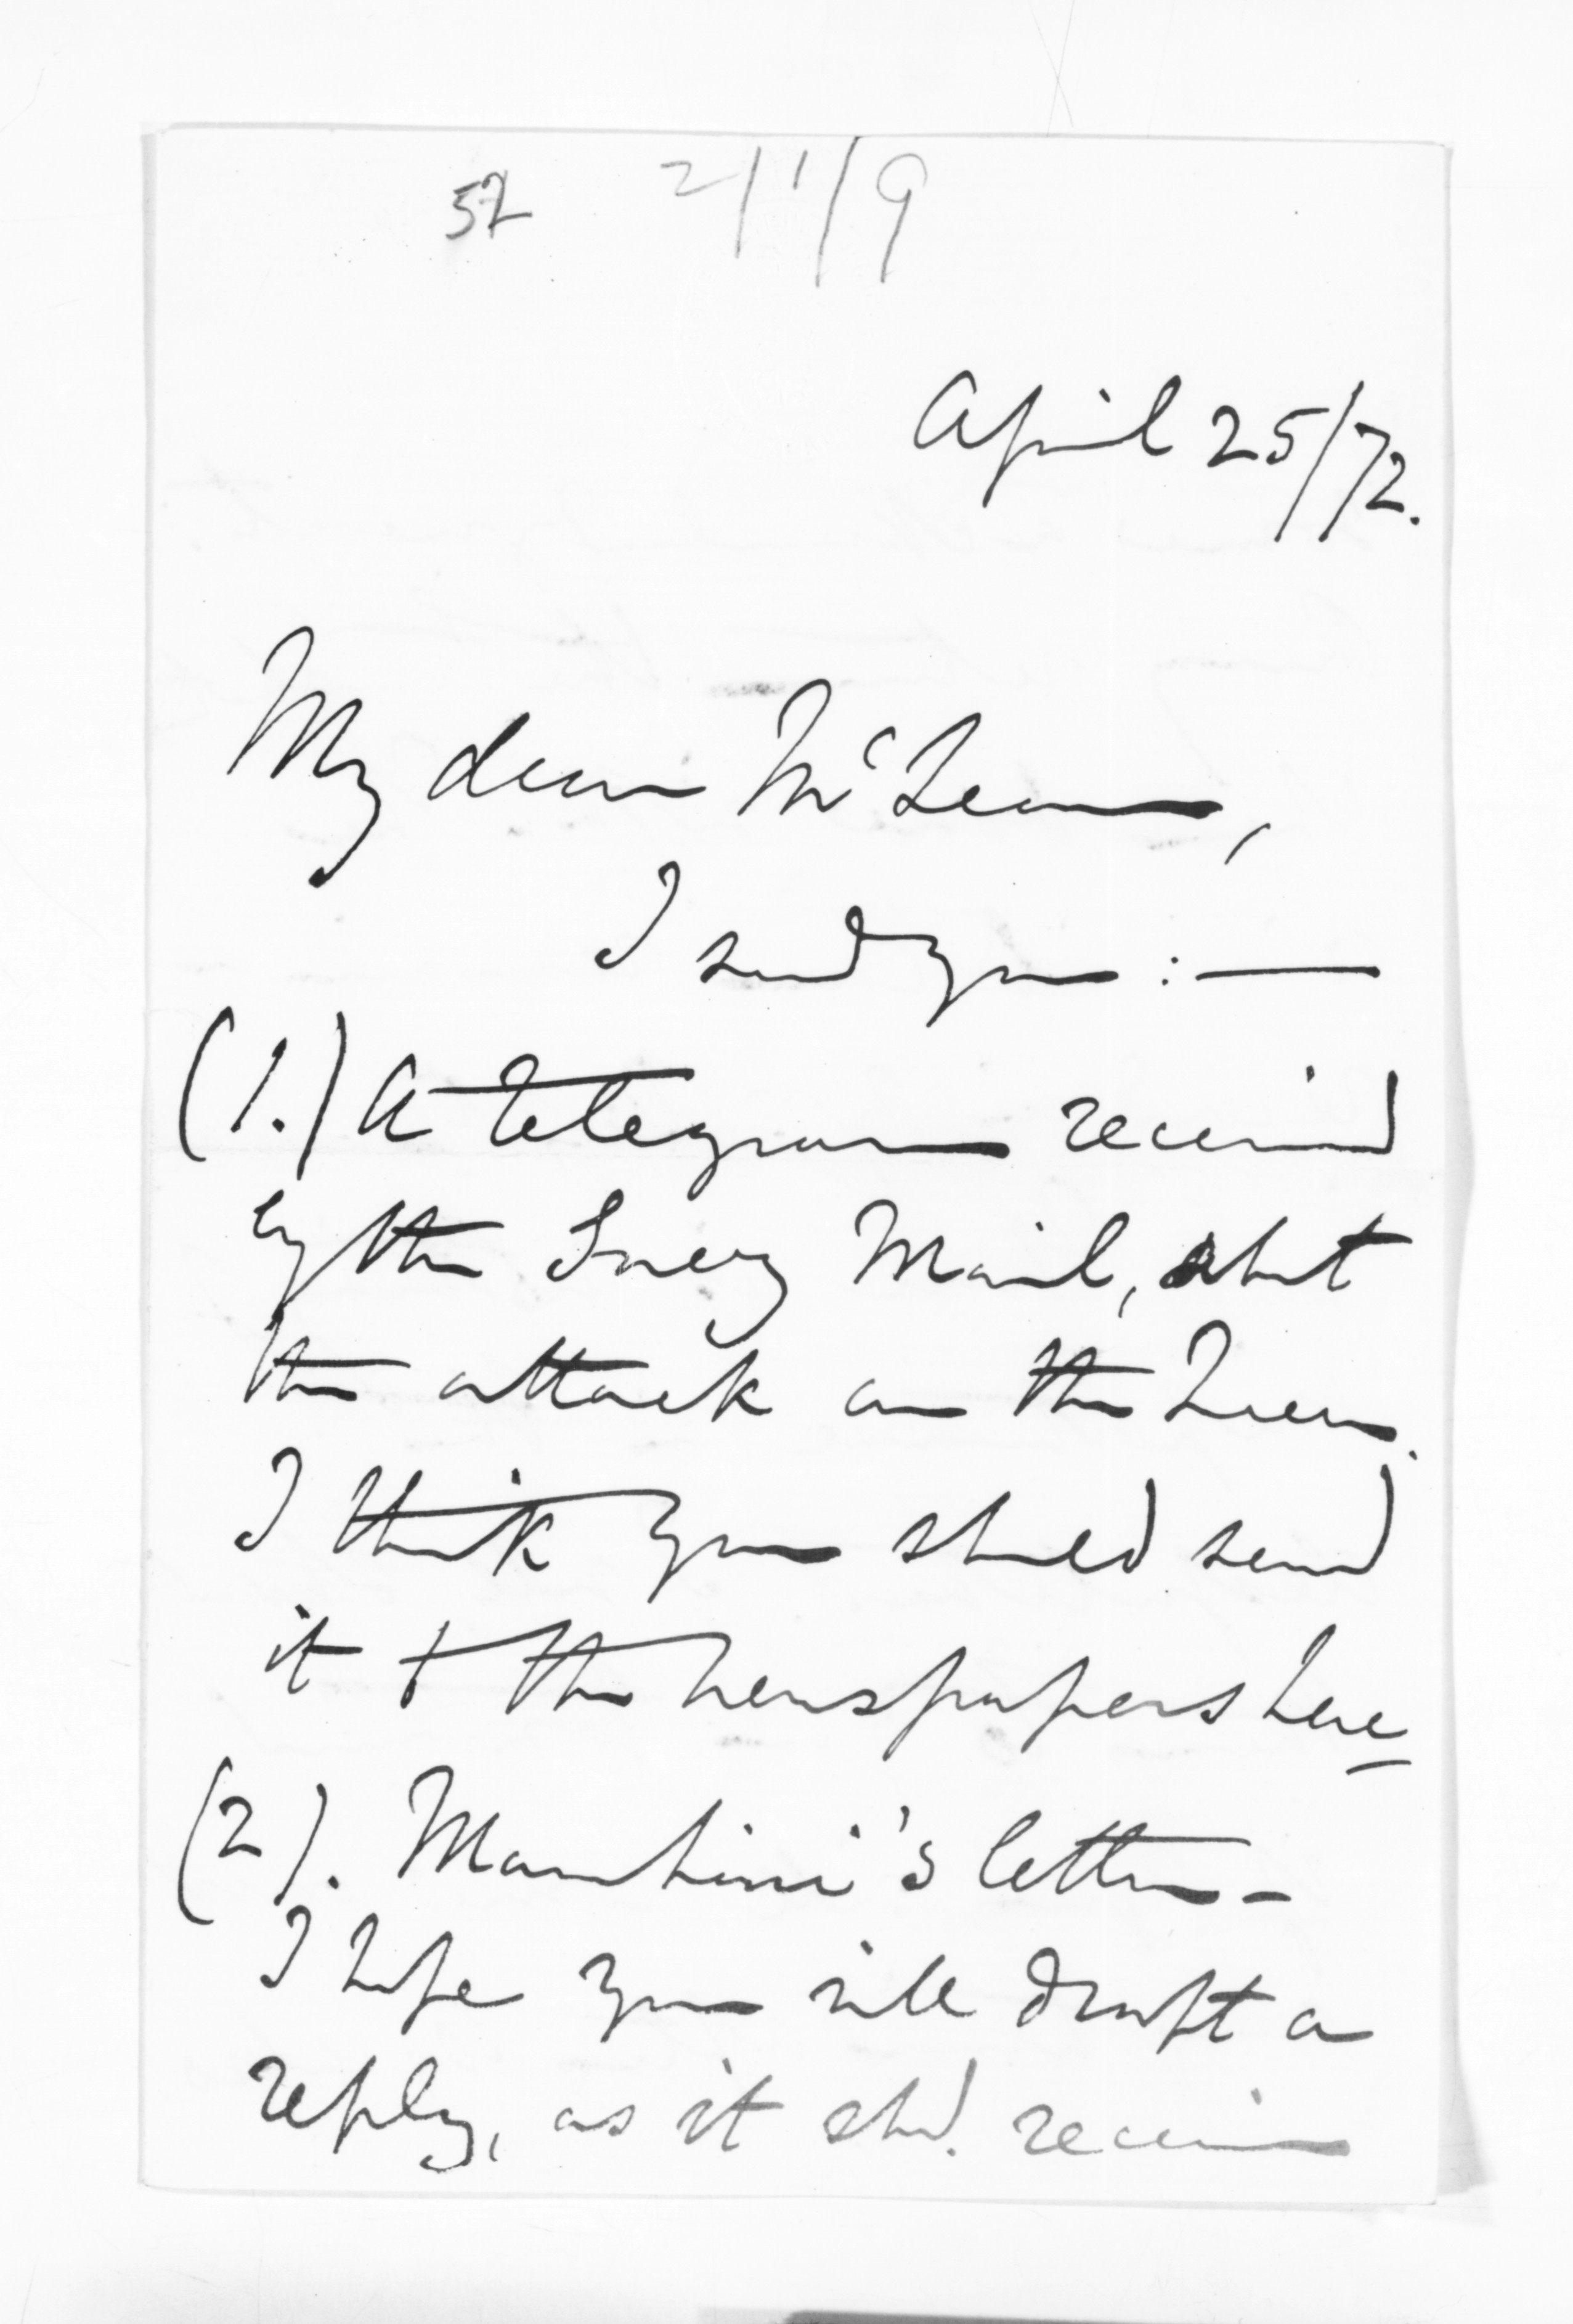 57 2/1/9
April 25/72.
My dear McLean,
I send you : —
(1.) A telegram received
by the Suez Mail, abt
the attack on the Queen.
I think you should send
it to the newspapers here
(2). Manhini's letter –
I hope you will draft a
reply, as it shd. receive